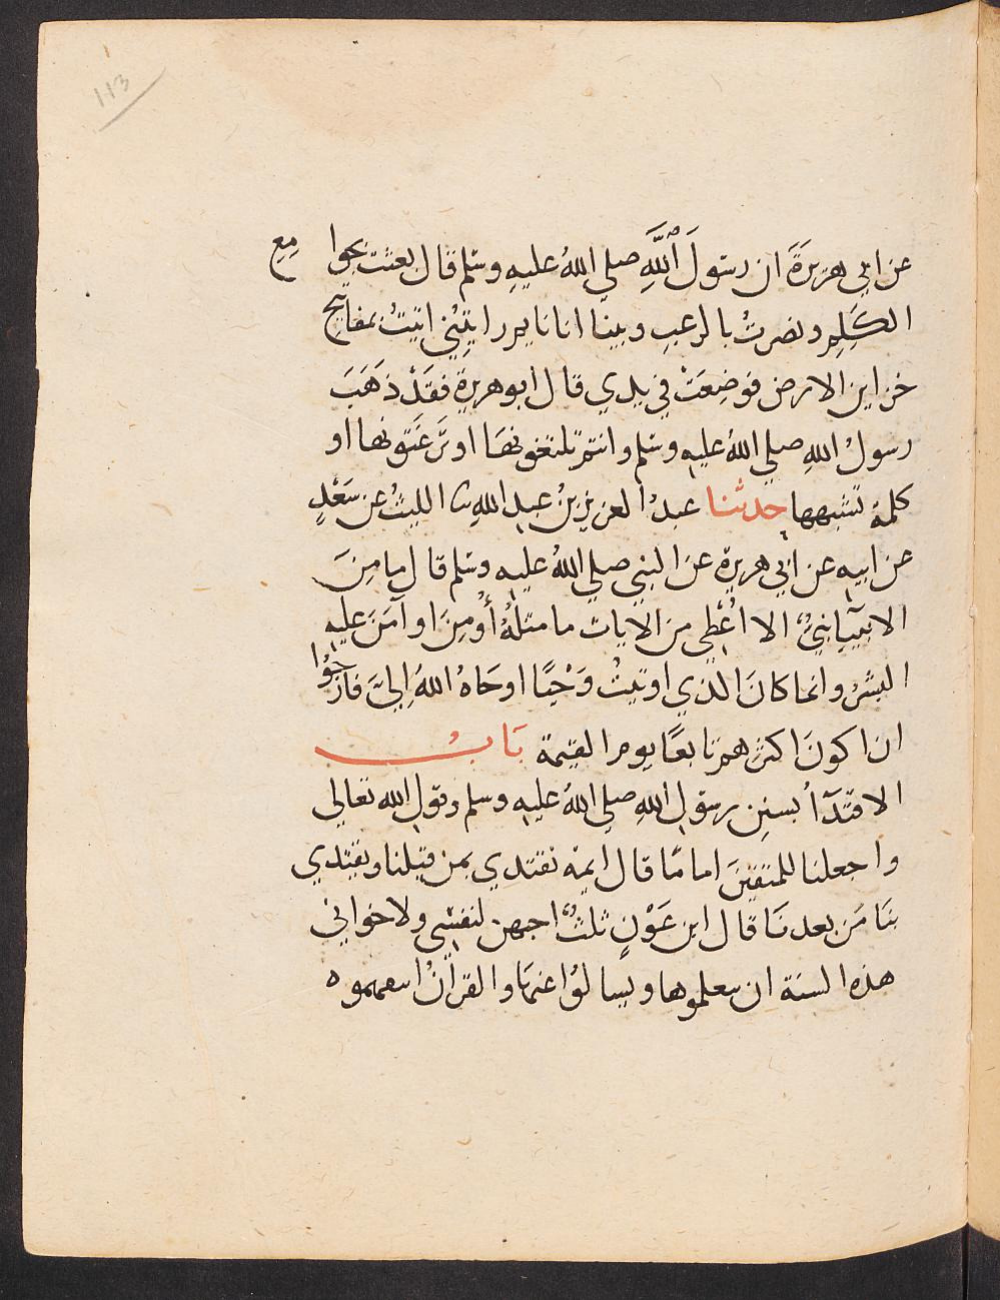 113
عن ابي هريرةَ ان رسولَ ٱللَّهِ صلي اللهُ عليهِ وسلم قال بعثت بجوامِعِ
الكَلِمِ ونصرتُ بالرعبِ وبينا انا نايم رايتُني اتيتُ بمفاتيح
خزاين الارض فوضِعَتْ في يدي قال ابو هريرة فقَدْ ذهَبَ
رسولُ اللهِ صلي اللهُ عليهِ وسلم وانتم تلتغونهَا او ترغَثونها او
كلمةً تشبهها حدثنا عبدُ العزيزِ بنُ عبدِ اللهِ ثنا الليثُ عن سَعْدٍ
عن ابيهِ عن ابي هريرة عن النبي صلي اللهُ عليهِ وسلم قال ما مِنَ
الانبياءِ نبيٌّ الا اُعْطِي منَ الايات ما مثلُهُ أُومِنَ او آمَنَ عليهِ
البشرُ وانما كانَ الذي اوتيتُ وَحْيًا اوحَاهُ اللهُ اليَّ فارجُوا
ان اكونَ اكثرهم تابعًا يوم القيمة بَابُ
الاقتدآءُ بسننِ رسولِ اللهِ صلي اللهُ عليهِ وسلم وقولِ الله تعالي
واجعلنا للمتقينَ اماما قال ايمة نقتدي بمن قبلنا ويقتدي
بنَا مَن بعدنَا قال ابن عَوْنٍ ثلثٌ احبهن لنفسي ولاخواني
هذه السنة ان يتعلموها ويسالوُا عنهَا والقرآنُ ان يتفهموه